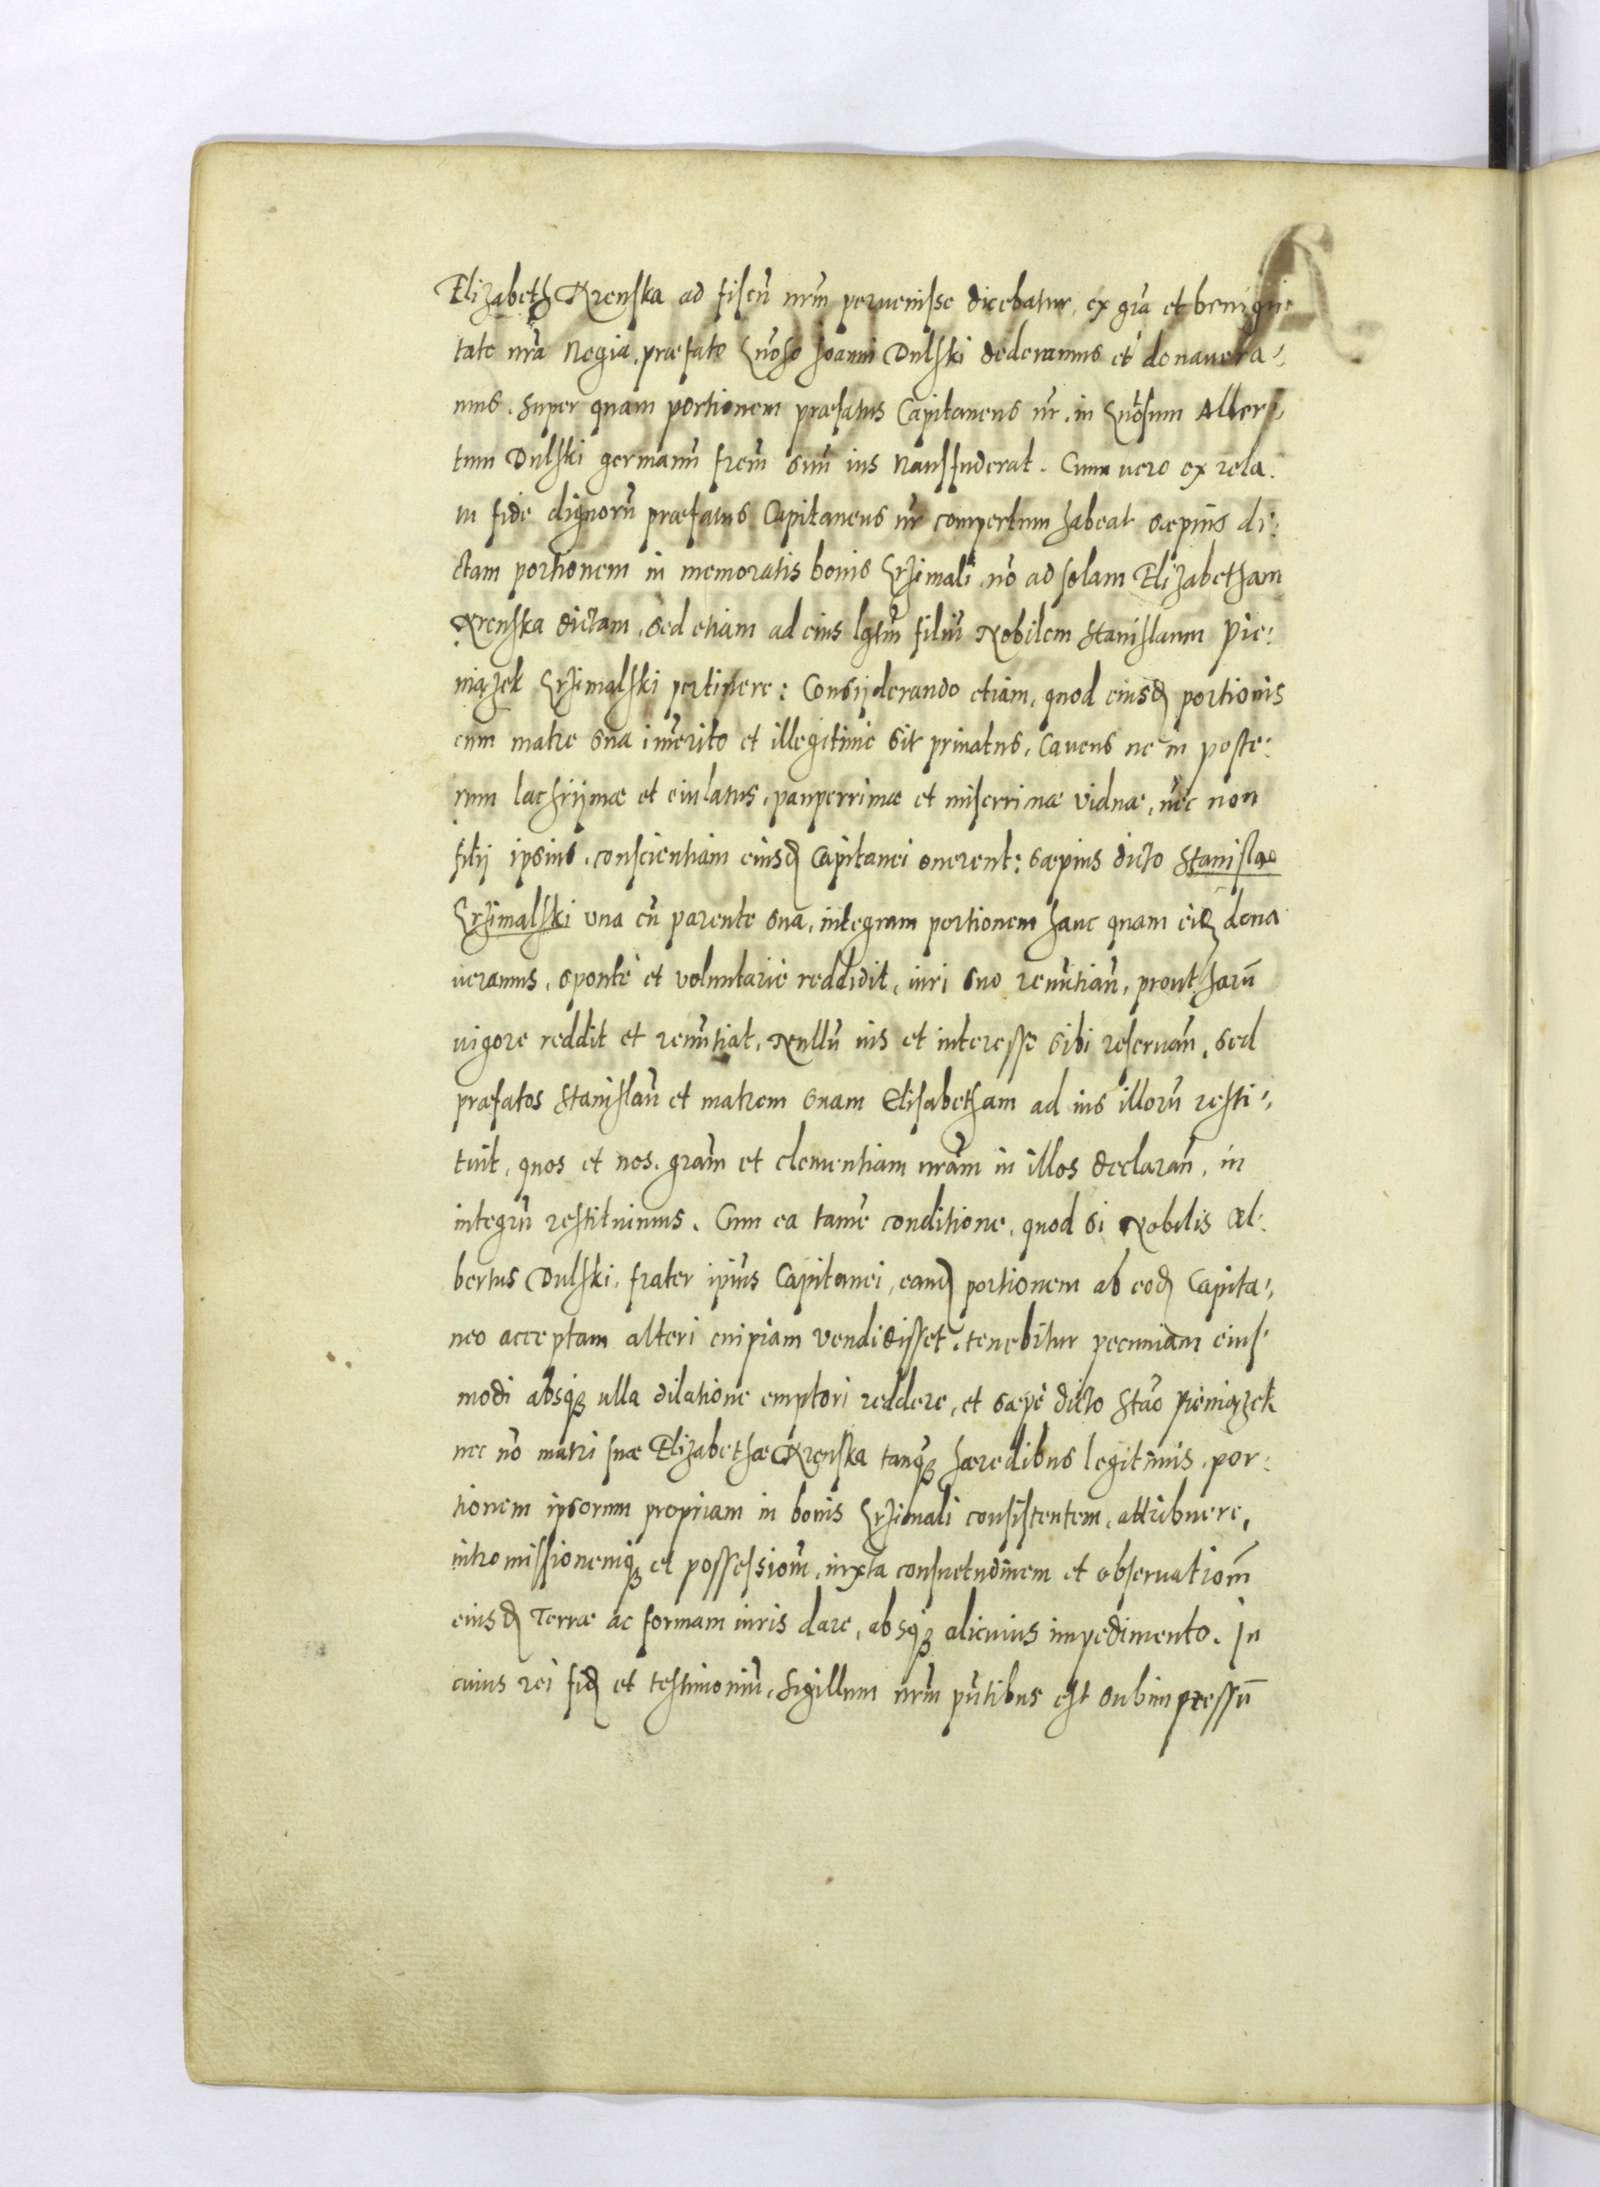 Elizabeth Krenska ad fiscū nrm̄ peruenisse dicebatur, ex gr̄a et benigni
tate nr̄a Regia, præfato Gn̄oso Joanni Dulski dederamus et donauera-,
mus. Super quam portionem præfatus Capitaneus nr̄. in Gn̄osum Alber-,
tum Dulski germanū frem̄ suū ius transfuderat. Cum uero ex rela-
tu fide dignorū præfatus Capitaneus nr̄ compertum habeat sæpius di-
ctam portionem in memoratis bonis Grzimali nō ad solam Elizabetham
Krenska dictam, sed etiam ad eius lgtm̄ filiū Nobilem Stanislaum Pie-
niązek Grzimalski pertinere: Consyderando etiam, quod eiusd portionis
cum matre sua im̄erito et illegitime sit priuatus, Cauens ne in poste-
rum lachrijmæ et eiulatus, pauperrimæ et miserrimæ viduæ, nec non
filij ipsius, conscientiam eiusd Capitanei onerent: sæpius dicto Stanislao
Grzimalski una cū parente sua, integram portionem hanc quam eid dona
ueramus, sponte et voluntarie reddidit, iuri suo renūtian̄, prout harū
uigore reddit et renūtiat, Nullū ius et interesse sibi reseruan̄, sed
præfatos Stanislaū et matrem suam Elisabetham ad ius illorū resti-,
tuit, quos et nos. gram̄ et clementiam nram̄ in illos declaran̄, in
integrū restituimus. Cum ea tamē conditione, quod si Nobilis Al-
bertus Dulski, frater ipius Capitanei, eamd portionem ab eod Capita-,
neo acceptam alteri cuipiam vendidisset, tenebitur pecuniam eius-
modi absq; ulla dilatione emptori reddere, et sæpe dicto Stāo Pieniązek
nec nō matri suæ Elizabethæ Krenska tanq; hæredibus legitimis, por-
tionem ipsorum propriam in bonis Grzimali consistentem, attribuere,
intromissionemq; et possessiom̄, iuxta consuetudinem et obseruatiom̄
eiusd Terræ ac formam iuris dare, absq; alicuius impedimento. In
cuius rei fid et testimoniū, Sigillum nrm̄ pn̄tibus est subimpressū